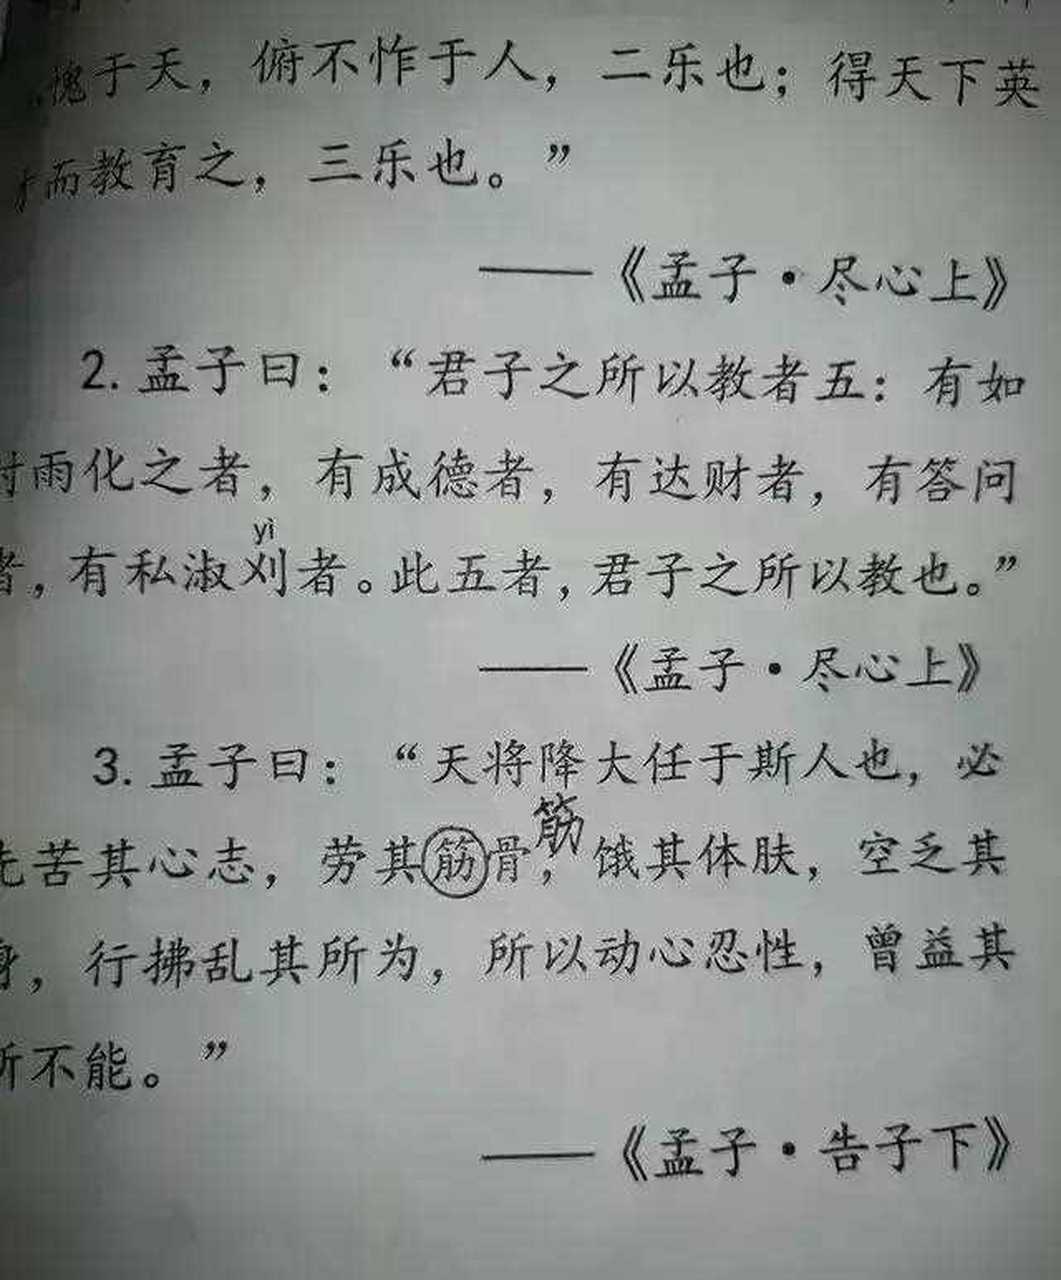 愧于天，俯不怍于人，二乐也；得天下英
而教育之，三乐也。”
——《孟子·尽心上》
2. 孟子曰：“君子之所以教者五：有如
时雨化之者，有成德者，有达财者，有答问
yì
者，有私淑刈者。此五者，君子之所以教也。”
——《孟子·尽心上》
3. 孟子曰：“天将降大任于斯人也，必
筋
先苦其心志，劳其筋骨，饿其体肤，空乏其
身，行拂乱其所为，所以动心忍性，曾益其
所不能。”
——《孟子·告子下》